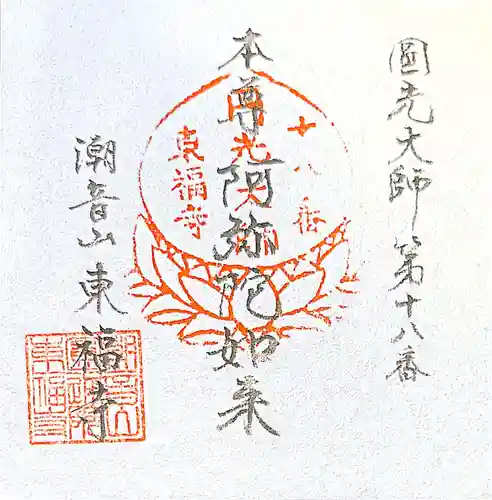 圓光大師 第十八番
本尊 阿弥陀如来
潮音山 東福寺
十八番
東福寺